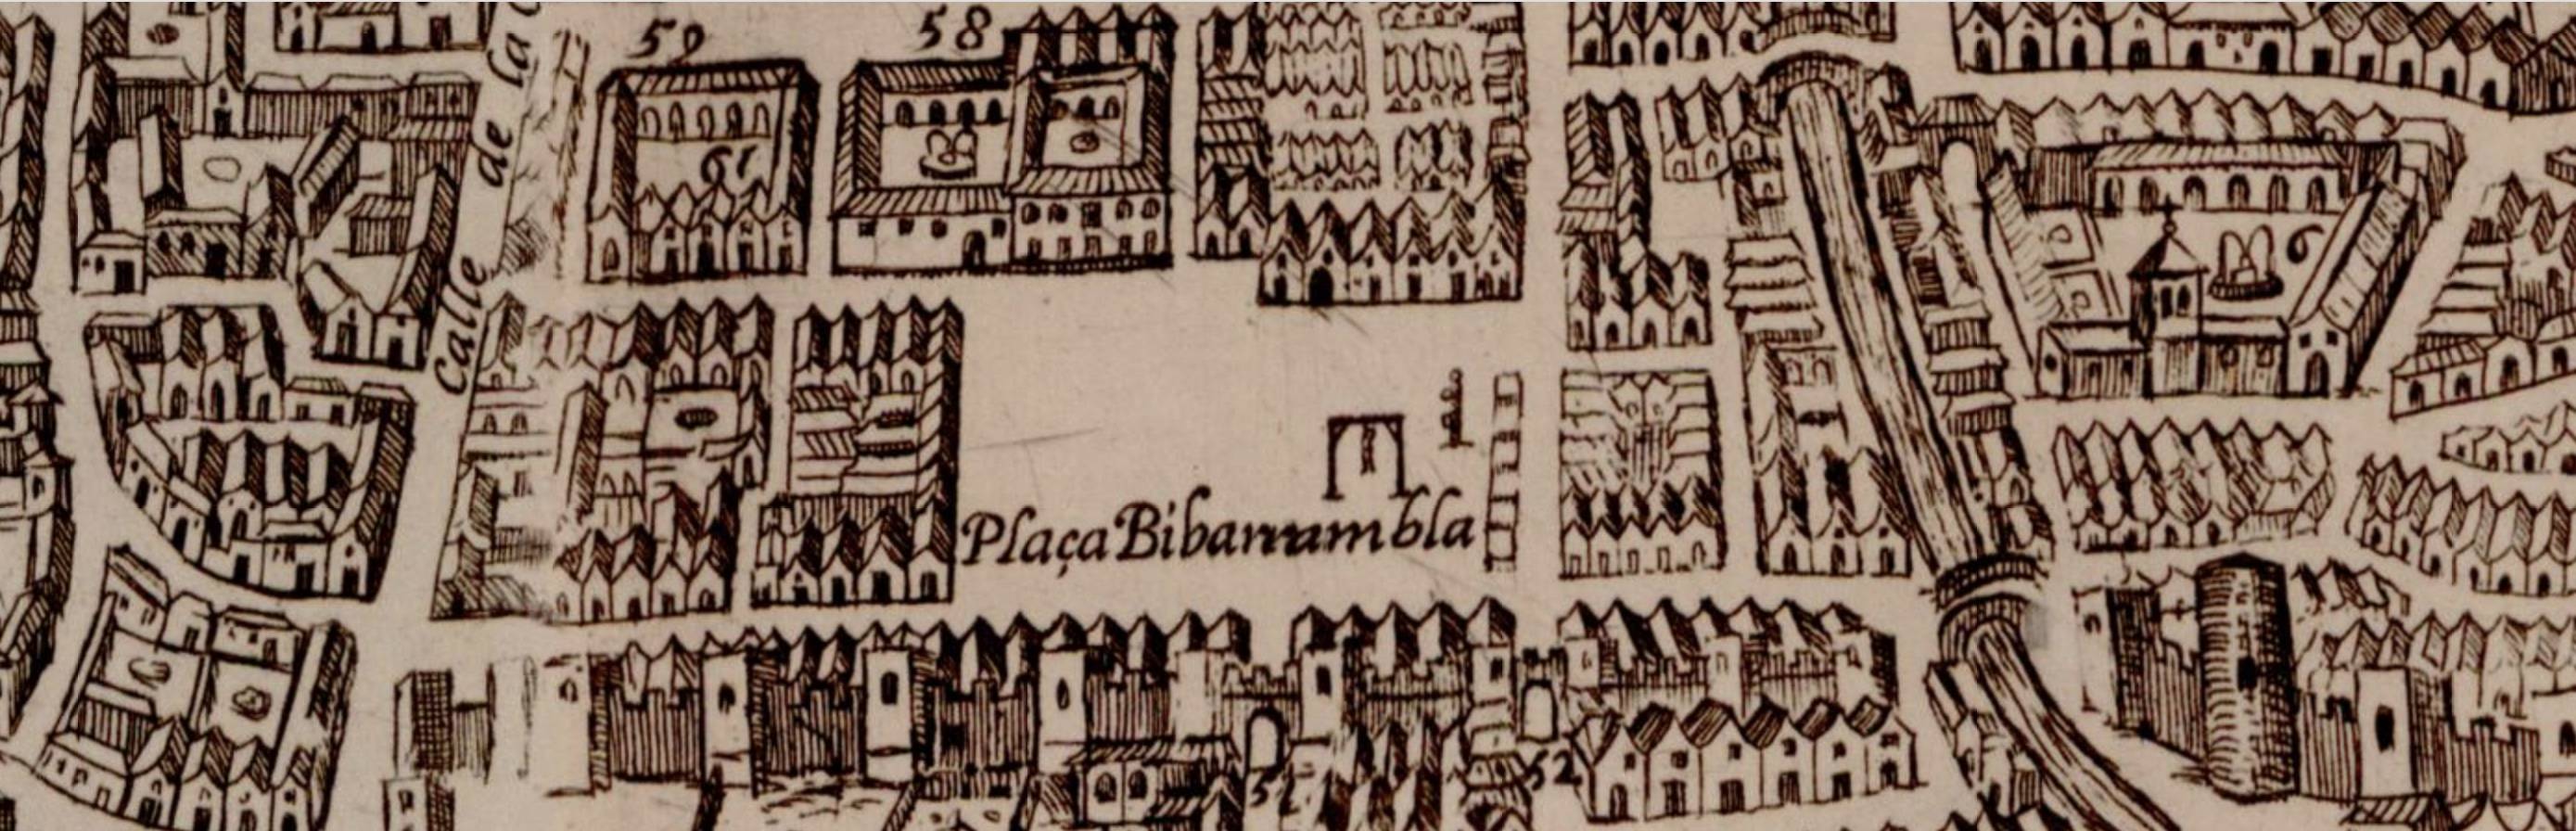 59
58
Calle de la C
61
6
Plaça Bibarrambla
51
52